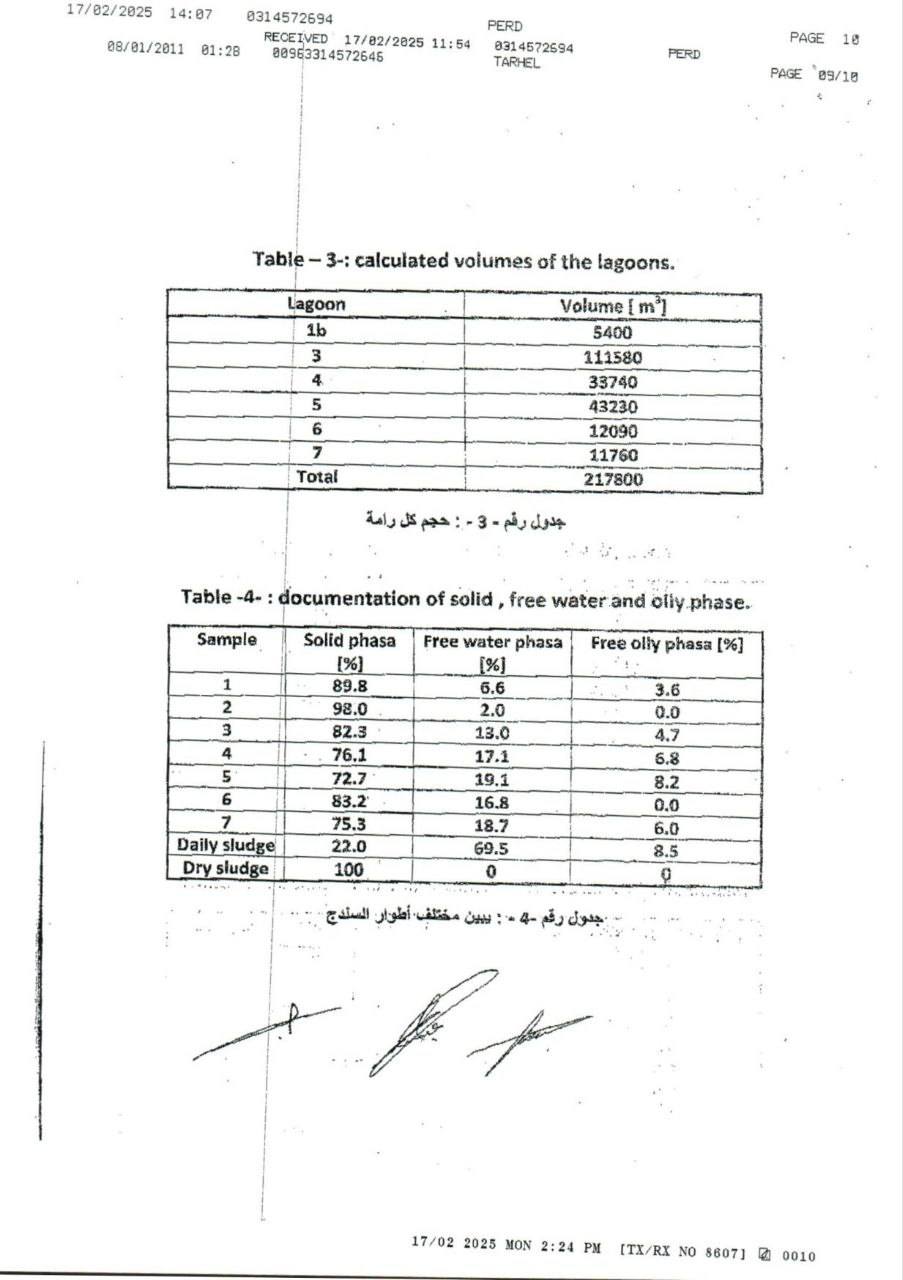 17/02/2025 14:07 0314572694 PERD PAGE 10
RECEIVED 17/02/2025 11:54 0314572694 PERD
08/01/2011 01:28 00963314572646 TARHEL PAGE 09/10
Table – 3-: calculated volumes of the lagoons.
Lagoon Volume [ m³]
1b 5400
3 111580
4 33740
5 43230
6 12090
7 11760
Total 217800
جدول رقم - 3 - : حجم كل رامة
Table -4- : documentation of solid , free water and oily phase.
Sample Solid phasa [%] Free water phasa [%] Free oily phasa [%]
1 89.8 6.6 3.6
2 98.0 2.0 0.0
3 82.3 13.0 4.7
4 76.1 17.1 6.8
5 72.7 19.1 8.2
6 83.2 16.8 0.0
7 75.3 18.7 6.0
Daily sludge 22.0 69.5 8.5
Dry sludge 100 0 0
جدول رقم -4- : يبين مختلف أطوار السلدج
17/02 2025 MON 2:24 PM [TX/RX NO 8607] 0010